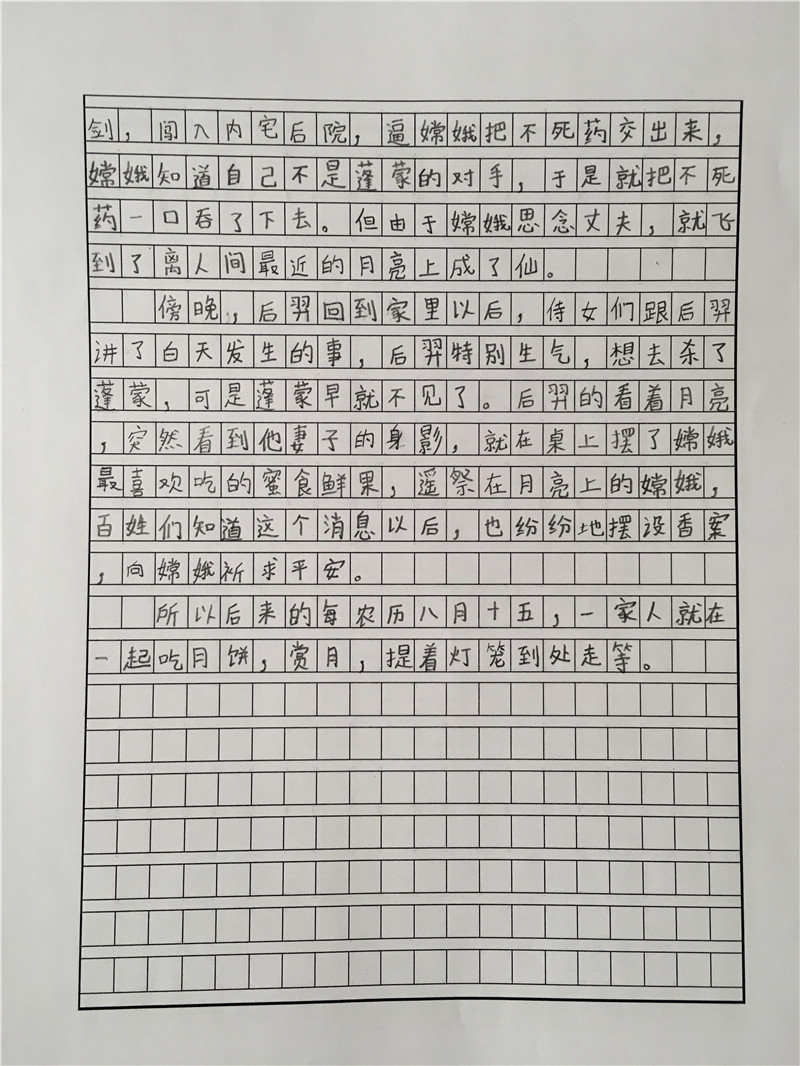 剑，闯入内宅后院，逼嫦娥把不死药交出来，
嫦娥知道自己不是蓬蒙的对手，于是就把不死
药一口吞了下去。但由于嫦娥思念丈夫，就飞
到了离人间最近的月亮上成了仙。
傍晚，后羿回到家里以后，侍女们跟后羿
讲了白天发生的事，后羿特别生气，想去杀了
蓬蒙，可是蓬蒙早就不见了。后羿的看着月亮
，突然看到他妻子的身影，就在桌上摆了嫦娥
最喜欢吃的蜜食鲜果，遥祭在月亮上的嫦娥，
百姓们知道这个消息以后，也纷纷地摆设香案
，向嫦娥祈求平安。
所以后来的每农历八月十五，一家人就在
一起吃月饼，赏月，提着灯笼到处走等。